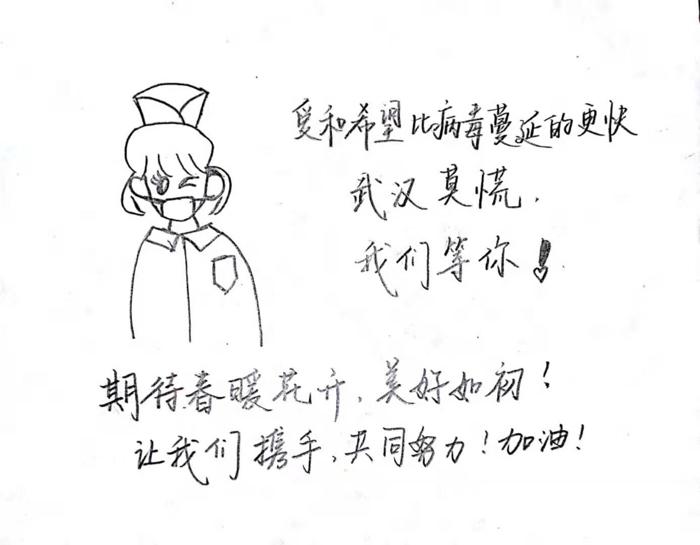 爱和希望比病毒蔓延的更快
武汉莫慌，
我们等你！
期待春暖花开，美好如初！
让我们携手，共同努力！加油！